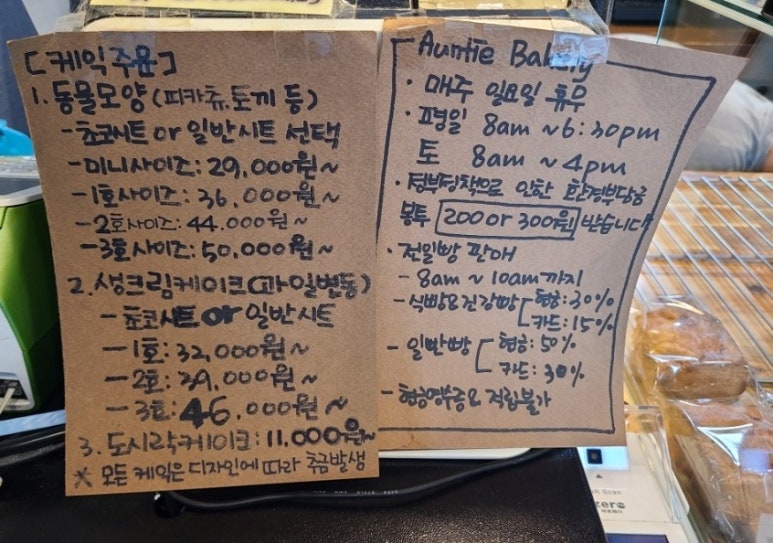 [케익주문]
1. 동물모양(피카츄,토끼 등)
- 쵸코시트 or 일반시트 선택
- 미니사이즈: 29,000원~
- 1호사이즈: 36,000원~
- 2호사이즈: 44,000원~
- 3호사이즈: 50,000원~
2. 생크림케이크(과일변동)
- 쵸코시트 or 일반시트
- 1호: 32,000원~
- 2호: 39,000원~
- 3호: 46,000원~
3. 도시락케이크: 11,000원~
* 모든 케익은 디자인에 따라 추금발생
Auntie Bakery
· 매주 일요일 휴무
· 평일 8am ~ 6:30pm
토 8am ~ 4pm
· 정부정책으로 인한 환경부담금
봉투 200 or 300원 받습니다
· 전일빵 판매
- 8am ~ 10am까지
- 식빵&건강빵 현금: 30%
카드: 15%
- 일반빵 현금: 50%
카드: 30%
- 현금영수증& 적립불가
Scan
zero